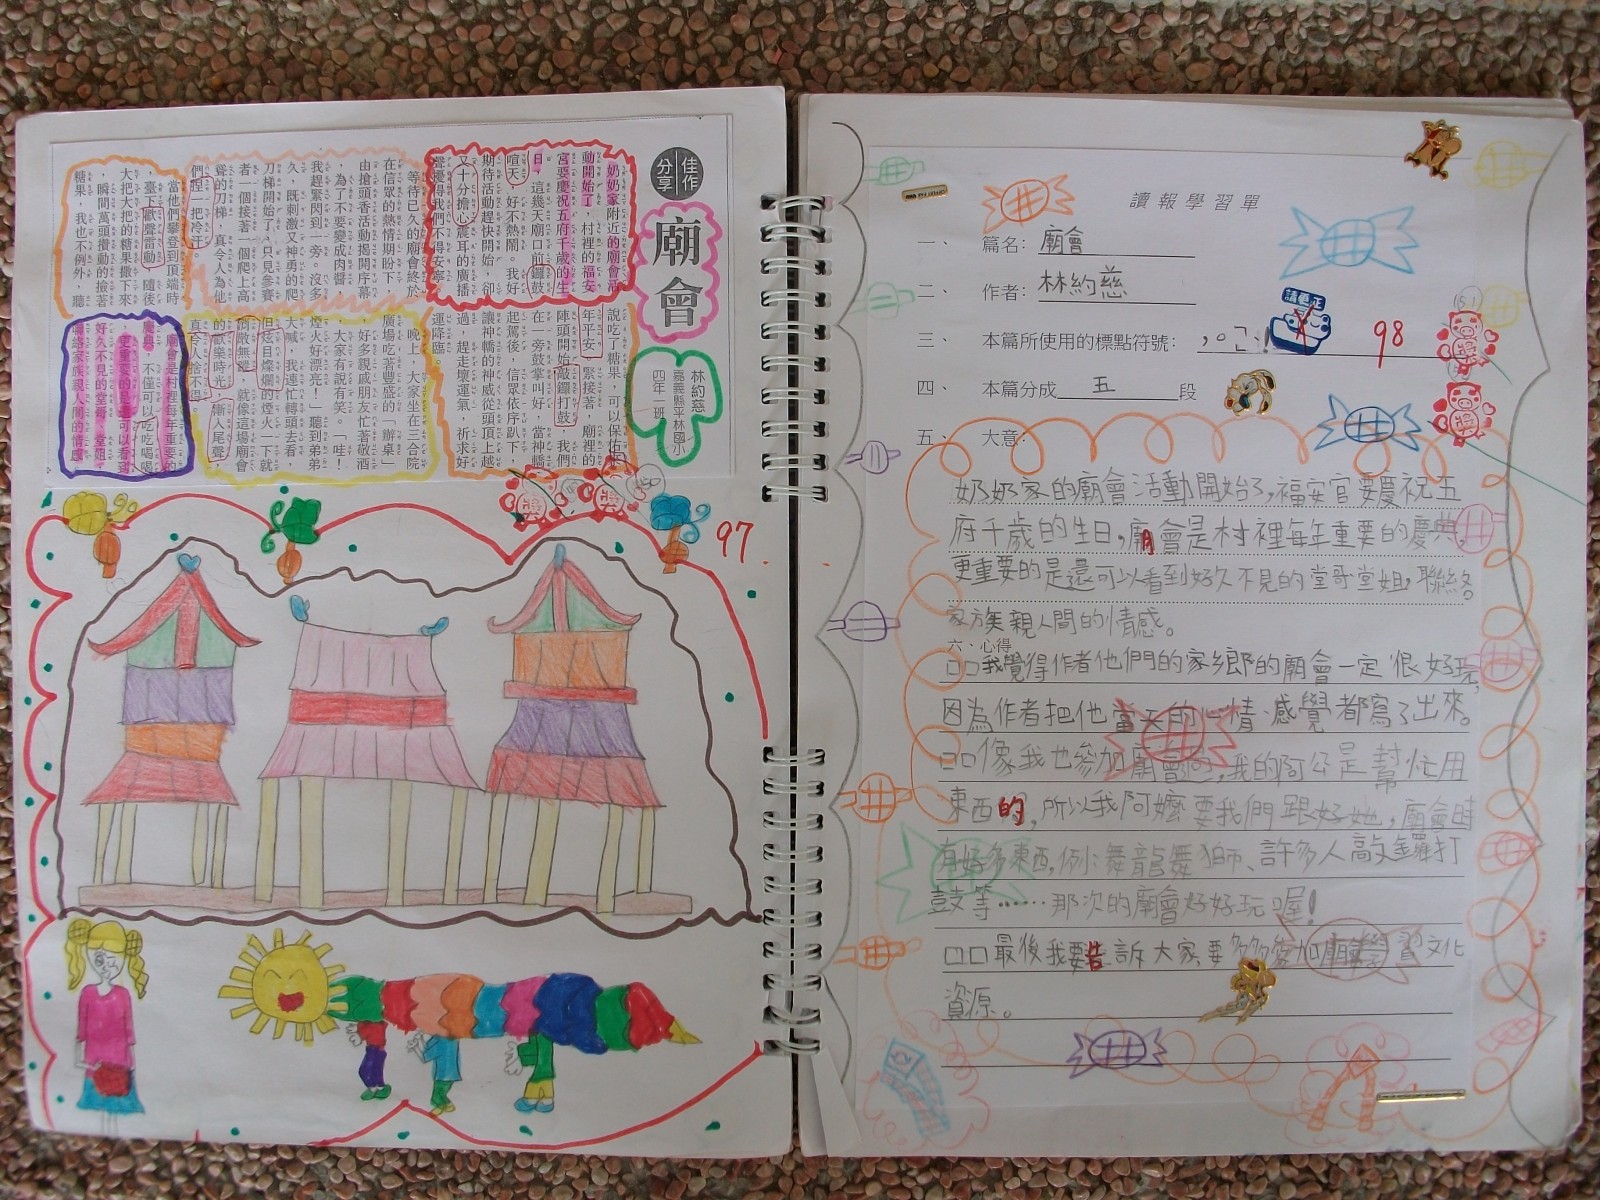 佳作
分享
廟會
林約慈
嘉義縣平林國小
四年一班
奶奶家附近的廟會活
動開始了，村裡的福安
宮要慶祝五府千歲的生
日，這幾天廟口前鑼鼓
喧天，好不熱鬧。我好
期待活動趕快開始，卻
又十分擔心震耳的廣播
聲擾得我們不得安寧。
等待已久的廟會終於
在信眾的熱情期盼下，
由搶頭香活動揭開序幕
，為了不要變成肉醬，
我趕緊閃到一旁。沒多
久，既刺激又神勇的爬
刀梯開始了，只見參賽
者一個接著一個爬上高
聳的刀梯，真令人為他
們捏一把冷汗。
當他們攀登到頂端時
，臺下歡聲雷動，隨後
大把大把的糖果撒下來
，瞬間萬頭攢動的撿著
糖果，我也不例外，聽
說吃了糖果，可以保佑
年平安。緊接著，廟裡的
陣頭開始敲鑼打鼓，我們
在一旁鼓掌叫好，當神轎
起駕後，信眾依序趴下，
讓神轎的神威從頭頂上越
過，趕走壞運氣，祈求好
運降臨。
晚上，大家坐在三合院
廣場吃著豐盛的「辦桌」
，好多親戚朋友忙著敬酒
，大家有說有笑。「哇！
煙火好漂亮！」聽到弟弟
大喊，我連忙轉頭去看，
但炫目燦爛的煙火一下就
消散無蹤，就像這場廟會
的歡樂時光，漸入尾聲，
真令人捨不得。
廟會是村裡每年重要的
慶典，不僅可以吃吃喝喝
，更重要的是還可以看到
好久不見的堂哥、堂姐，
聯絡家族親人間的情感。
97
讀報學習單
一、 篇名：廟會
二、 作者：林約慈
三、 本篇所使用的標點符號：，。「」！
請更正
98
四、 本篇分成五段
五、 大意：
奶奶家的廟會活動開始了，福安宮要慶祝五
府千歲的生日，廟會是村裡每年重要的慶典，
更重要的是還可以看到好久不見的堂哥堂姐，聯絡
家族親人間的情感。
六、心得
□□我覺得作者他們的家鄉的廟會一定很好玩，
因為作者把他當天的心情感覺都寫了出來。
□□像我也參加廟會，我的阿公是幫忙用
東西的，所以我阿嬤要我們跟好她，廟會時
有好多東西，例：舞龍舞獅、許多人敲鑼打
鼓等……那次的廟會好好玩喔！
□□最後我要告訴大家要多多參加廟學習文化
資源。